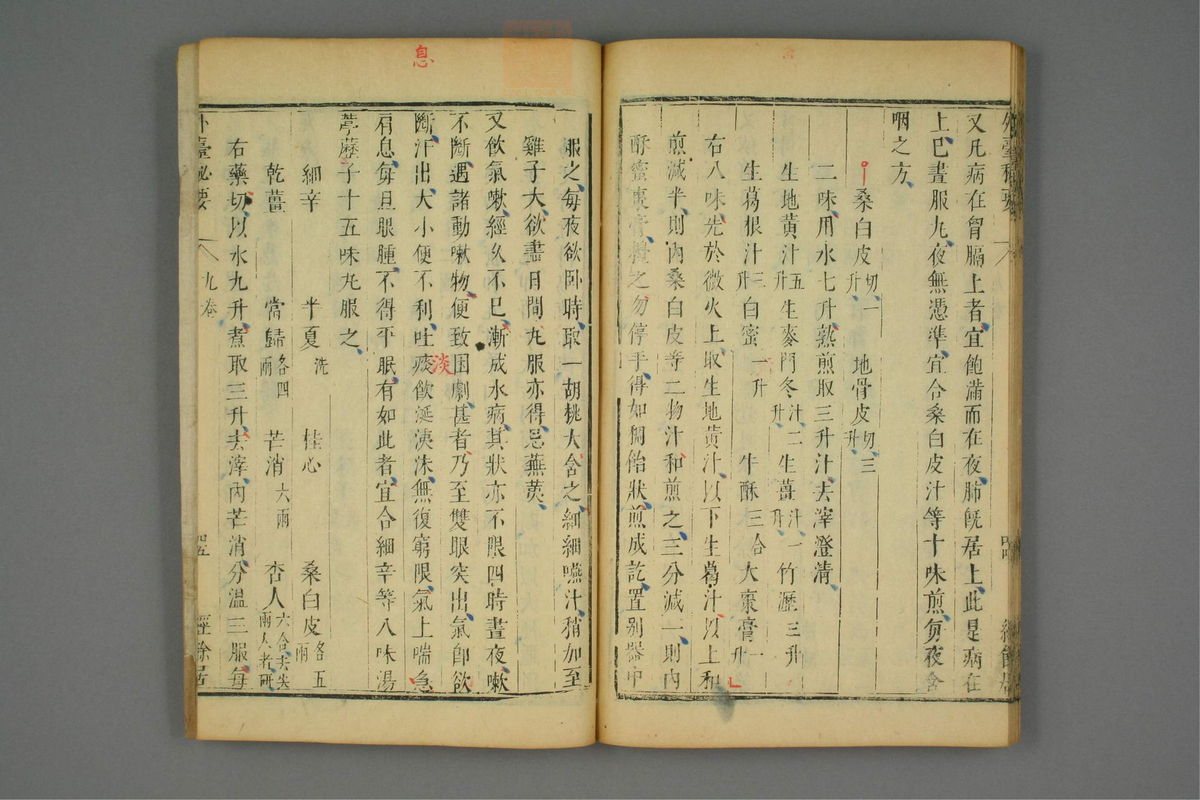 又凡病在胷膈上者宜飽滿而在夜肺旣居上此是病在
上巳晝服九夜無憑準宜合桑白皮汁等十味煎每夜含
咽之方
桑白皮切一升 地骨皮切三升
二味用水七升熟煎取三升汁去滓澄清
生地黃汁五升 生麥門冬汁二升 生薑汁一升 竹瀝三升
生葛根汁三升 白蜜一升 牛酥三合 大棗膏一升
右八味先於微火上取生地黃汁以下生葛汁以上和
煎減半則內桑白皮等二物汁和煎之三分減一則內
酥蜜棗膏攪之勿停手得如餳飴狀煎成訖置别器中
服之每夜欲卧時取一胡桃大含之細細嚥汁稍加至
雞子大欲盡日間丸服亦得忌蕪荑
又飲氣嗽經久不巳漸成水病其狀亦不限四時晝夜嗽
不斷遇諸動嗽物便致困劇甚者乃至雙眼突出氣卽欲
斷汗出大小便不利吐痰飲涎洟沫無復窮限氣上喘急
肩息每旦眼腫不得平眠有如此者宜合細辛等八味湯
葶藶子十五味丸服之
細辛 半夏洗 桂心 桑白皮各五兩
乾薑 當歸各四兩 芒消六兩 杏人六合去尖兩人者研
右藥切以水九升煮取三升去滓內芒消分溫三服每
外臺秘要 九卷 經餘居
息
淡